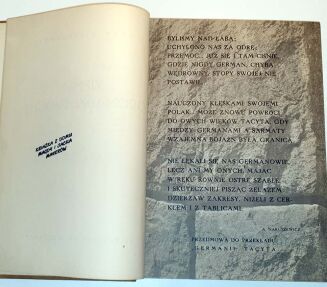 KSIĄŻKA Z DOMU
BYLIŚMY NAD ŁABĄ;
UCHYLONO NAS ZA ODRĘ;
PRZEMOC JUŻ SIĘ I TAM CIŚNIE,
GDZIE NIGDY GERMAN, CHYBA
WĘDROWNY, STOPY SWOJEJ NIE
POSTAWIŁ.
NAUCZONY KLĘSKAMI SWOJEMI
POLAK MOŻE ZNOWU POWRÓCI
DO OWYCH WIEKÓW TACYTA, GDY
MIĘDZY GERMANAMI A SARMATY
WZAJEMNA BOJAŹŃ BYŁA GRANICĄ.
NIE LĘKALI SIĘ NAS GERMANOWIE,
LECZ ANI MY ONYCH, MAJĄC
W RĘKU RÓWNIE OSTRE SZABLE,
I SKUTECZNIEJ PISZĄC ŻELAZEM
DZIERŻAW ZAKRESY, NIŻELI Z CYR-
KLEM I Z TABLICAMI.
A. NARUSZEWICZ
PRZEDMOWA DO PRZEKŁADU
GERMANII TACYTA